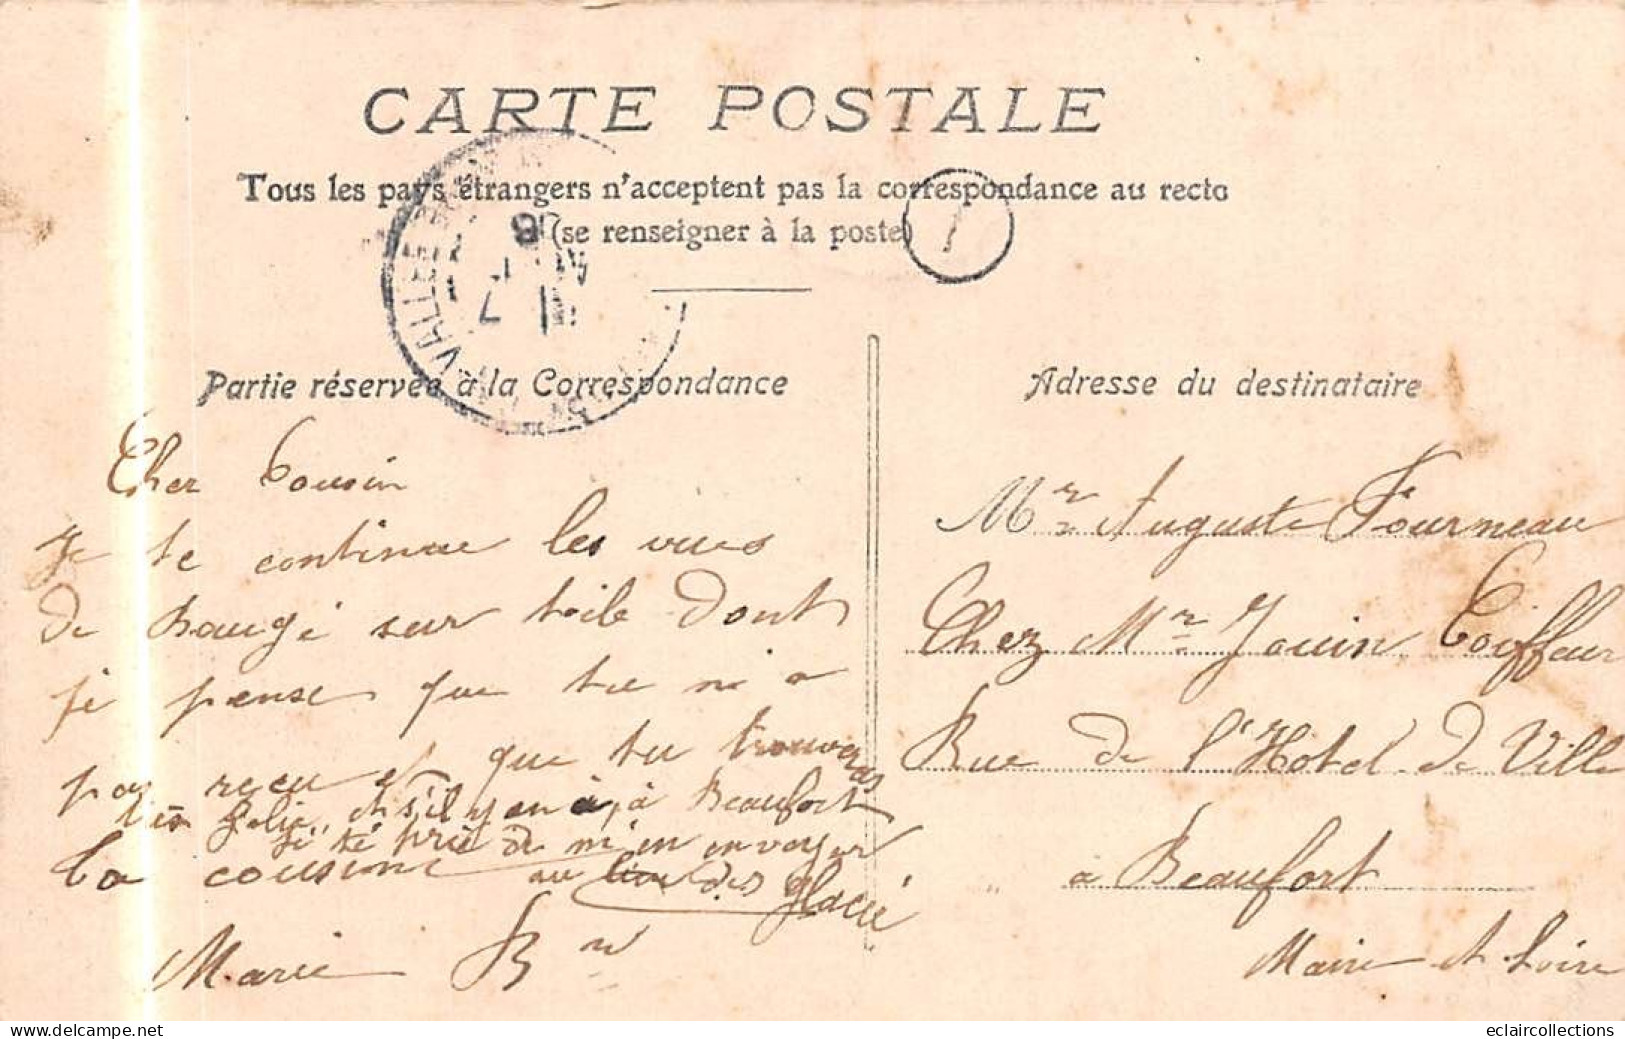 CARTE POSTALE
Tous les pays étrangers n'acceptent pas la correspondance au recto
(se renseigner à la poste)
VALLÉE
Partie réservée à la Correspondance
Cher Cousin
Je te continue les vues
de Baugé sur toile dont
je pense que tu n'a
pas reçu et que tu trouveras
très jolie, et s'il y en a, à Beaufort
je te prie de m'en envoyer
au lieu des glacié
Ta cousine
Marie B
Adresse du destinataire
Mr Auguste Fourneau
Chez Mr Jouin Coiffeur
Rue de l'Hotel de Ville
à Beaufort
Maine et Loire
eclaircollections